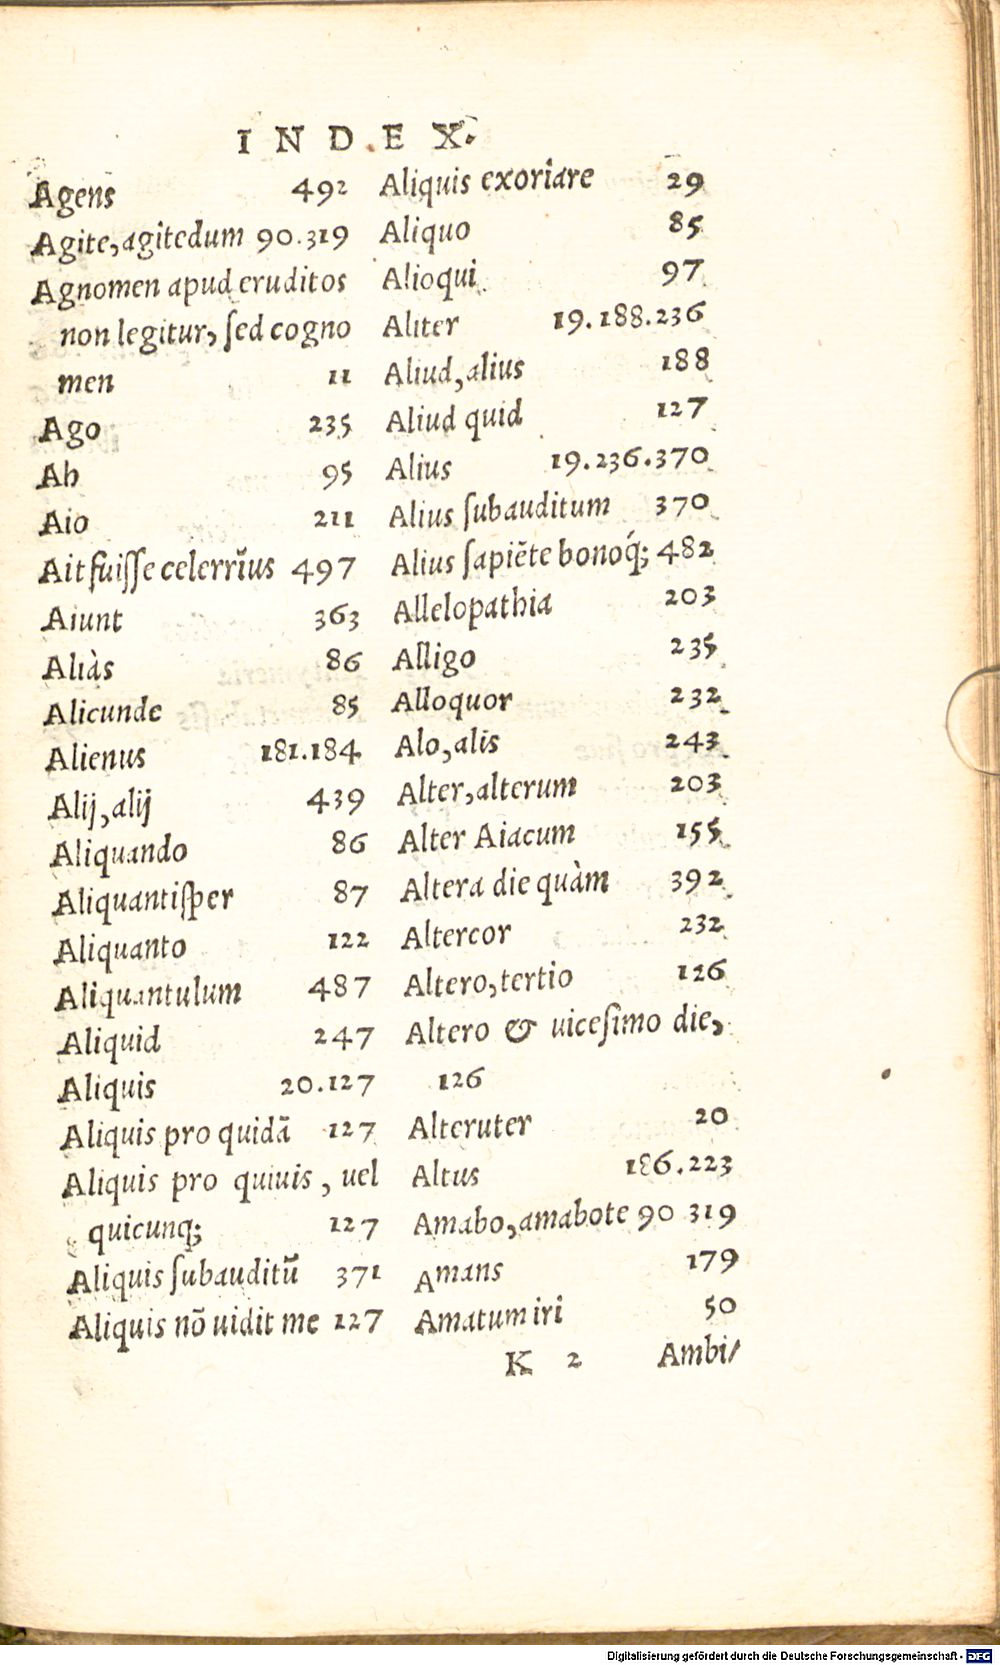 INDEX.
Agens 492
Agite, agitedum 90.319
Agnomen apud eruditos
non legitur, ſed cogno
men 11
Ago 235
Ah 95
Aio 211
Ait fuiſſe celerrīus 497
Aiunt 363
Aliàs 86
Alicunde 85
Alienus 181.184
Alij, alij 439
Aliquando 86
Aliquantiſper 87
Aliquanto 122
Aliquantulum 487
Aliquid 247
Aliquis 20.127
Aliquis pro quidā 127
Aliquis pro quiuis, uel
quicunq; 127
Aliquis ſubauditū 371
Aliquis nō uidit me 127
Aliquis exoriare 29
Aliquo 85
Alioqui 97
Aliter 19.188.236
Aliud, alius 188
Aliud quid 127
Alius 19.236.370
Alius ſubauditum 370
Alius ſapiēte bonoq́; 482
Allelopathia 203
Alligo 235
Alloquor 232
Alo, alis 243
Alter, alterum 203
Alter Aiacum 155
Altera die quàm 392
Altercor 232
Altero, tertio 126
Altero & uiceſimo die,
126
Alteruter 20
Altus 186.223
Amabo, amabote 90 319
Amans 179
Amatum iri 50
K 2 Ambi/
Digitalisierung gefördert durch die Deutsche Forschungsgemeinschaft - DFG